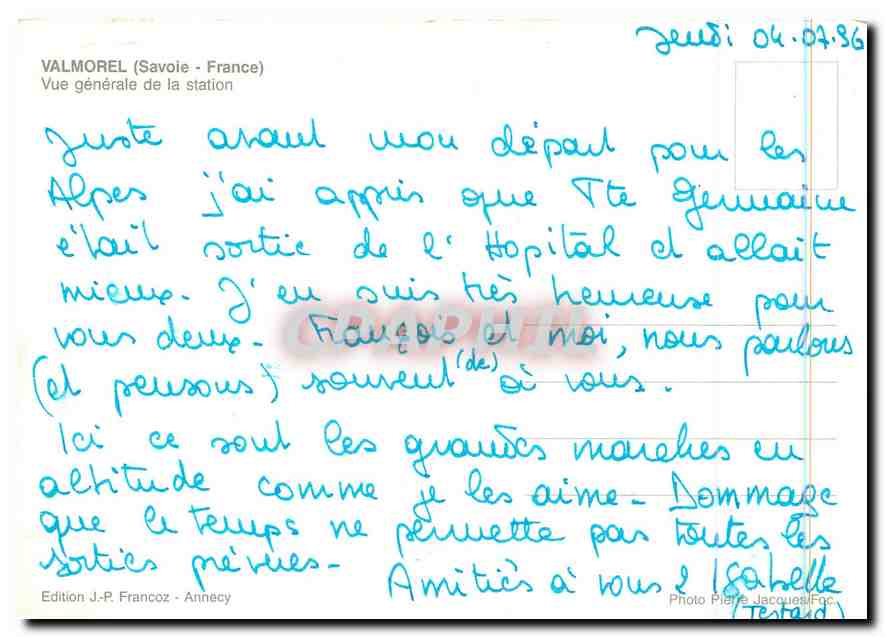 Jeudi 04.07.96
VALMOREL (Savoie - France)
Vue générale de la station
Juste avant mon départ pour les
Alpes j'ai appris que Tte Germaine
était sortie de l'Hopital et allait
mieux. J'en suis très heureuse pour
vous deux. François et moi, nous parlons
(et pensons) souvent (de) à vous.
Ici ce sont les grandes marches en
altitude comme je les aime. Dommage
que le temps ne permette pas toutes les
sorties prévues.
Amitiés à vous 2 Isabelle
Edition J.-P. Francoz - Annecy
Photo Pierre Jacques/Foc.